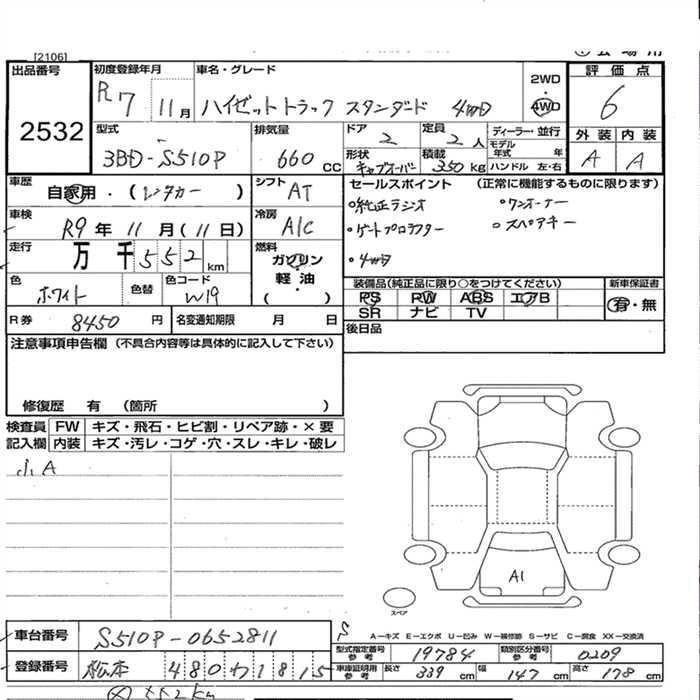 [2106]
出品番号
2532
初度登録年月
R7 11月
車名・グレード
ハイゼットトラック スタンダード 4WD
2WD
4WD
評価点
6
外装 内装
A A
型式
3BD-S510P
排気量
660 CC
ドア
2
定員
2人
ディーラー・並行
モデル年式 年
形状
キャブオーバー
積載
350kg
ハンドル 左・右
車歴
自家用・(レンタカー)
シフト
AT
セールスポイント (正常に機能するものに限ります)
純正ラジオ
ワンオーナー
ゲートプロテクター
スペアキー
4WD
車検
R9年 11月(11日)
冷房
A/C
走行
万 千 552 km
燃料
ガソリン
軽油
( )
色
ホワイト
色替
色コード
W19
装備品(純正品に限り○をつけてください)
PS PW ABS エアB
SR ナビ TV
新車保証書
有・無
R券
8450円
名変通知期限 月 日
後日品
注意事項申告欄 (不具合内容等は具体的に記入して下さい)
修復歴 有 (箇所 )
検査員 FW キズ・飛石・ヒビ割・リペア跡・×要
記入欄 内装 キズ・汚レ・コゲ・穴・スレ・キレ・破レ
小A
A1
スペア
A―キズ E―エクボ U―凹み W―補修跡 S―サビ C―腐食 XX―交換済
車台番号
S510P-0652811
登録番号
松本 480 1815
型式指定番号 参考
19784
類別区分番号 参考
0209
車庫証明用 参考
長さ 339 cm 幅 147 cm 高さ 178 cm